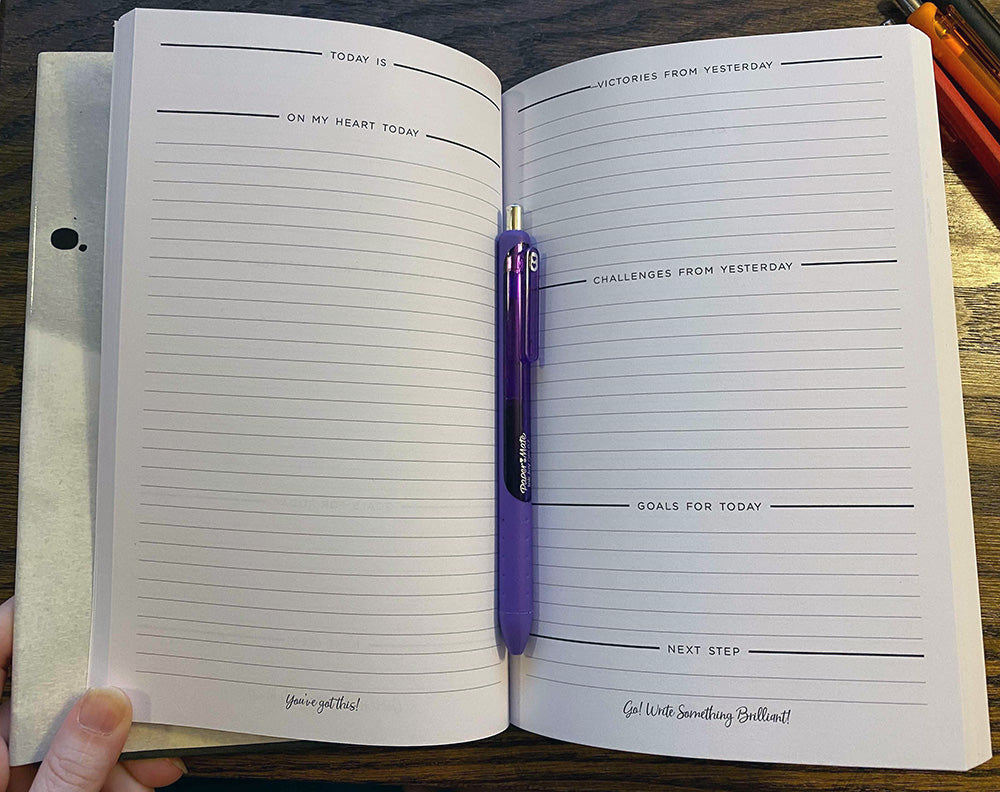 TODAY IS
ON MY HEART TODAY
You've got this!
VICTORIES FROM YESTERDAY
CHALLENGES FROM YESTERDAY
GOALS FOR TODAY
NEXT STEP
Go! Write Something Brilliant!
Paper Mate